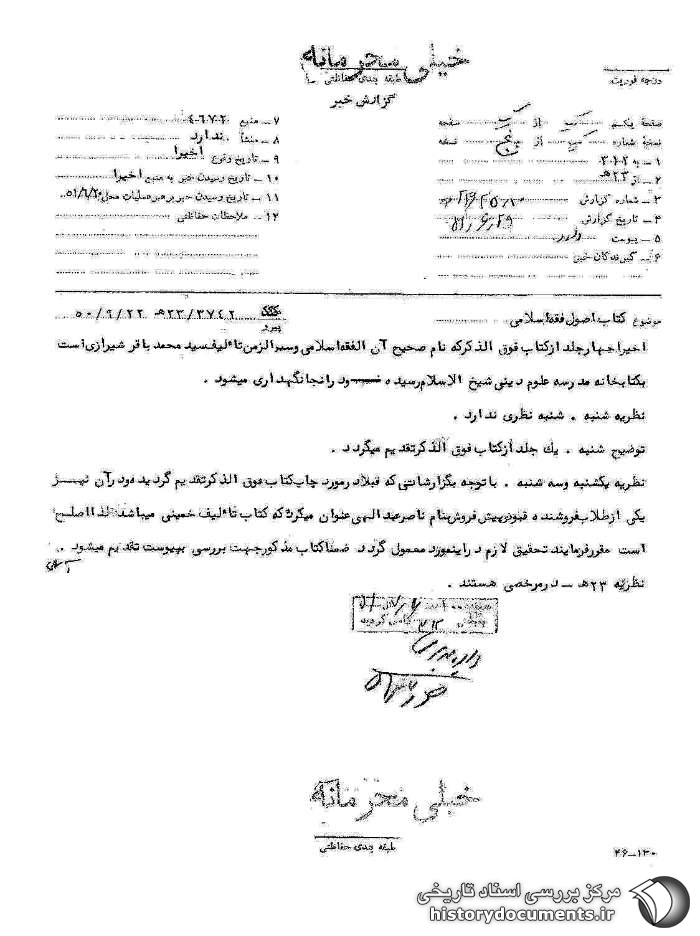 خیلی محرمانه
درجه فوریت
طبقه بندی حفاظتی
گزارش خبر
صفحه یکم از یک صفحه
نسخه شماره از پنج نسخه
۱ ــ به ۳۰۲
۲ ــ از ۲۳ هـ
۳ ــ شماره گزارش
۴ ــ تاریخ گزارش ۵۱/۶/۲۹
۵ ــ پیوست دارد
۶ ــ گیرندگان خبر
۷ ــ منبع ۴۰۶۷۲
۸ ــ منشأ ندارد
۹ ــ تاریخ وقوع اخیرا
۱۰ ــ تاریخ رسیدن خبر به منبع اخیرا
۱۱ ــ تاریخ رسیدن خبر برهبر عملیات محل ۵۱/۶/۲۰
۱۲ ــ ملاحظات حفاظتی
موضوع کتاب اصول فقه اسلامی
پیرو ۲۳/۳۷۴۲هـ ۵۰/۹/۲۲
اخیرا چهار جلد از کتاب فوق الذکر که نام صحیح آن الفقه اسلامی وسیرالزمن تالیف سید محمد باقر شیرازی است
بکتابخانه مدرسه علوم دینی شیخ الاسلام رسیده و در آنجا نگهداری میشود .
نظریه شنبه . شنبه نظری ندارد .
توضیح شنبه . یک جلد از کتاب فوق الذکر تقدیم میگردد .
نظریه یکشنبه وسه شنبه . با توجه بگزارشاتی که قبلا در مورد چاپ کتاب فوق الذکر تقدیم گردیده و در آن نیز
یکی از طلاب فروشنده قبوض پیش فروش بنام ناصر عبدالهی عنوان میکرد که کتاب تالیف خمینی میباشد لذا اصلح
است مقرر فرمایند تحقیق لازم در اینمورد معمول گردد ضمنا کتاب مذکور جهت بررسی بپیوست تقدیم میشود .
نظریه ۲۳ هـ ــ در مرخصی هستند .
خیلی محرمانه
طبقه بندی حفاظتی
۴۶ــ۱۳۰
مرکز بررسی اسناد تاریخی
historydocuments.ir